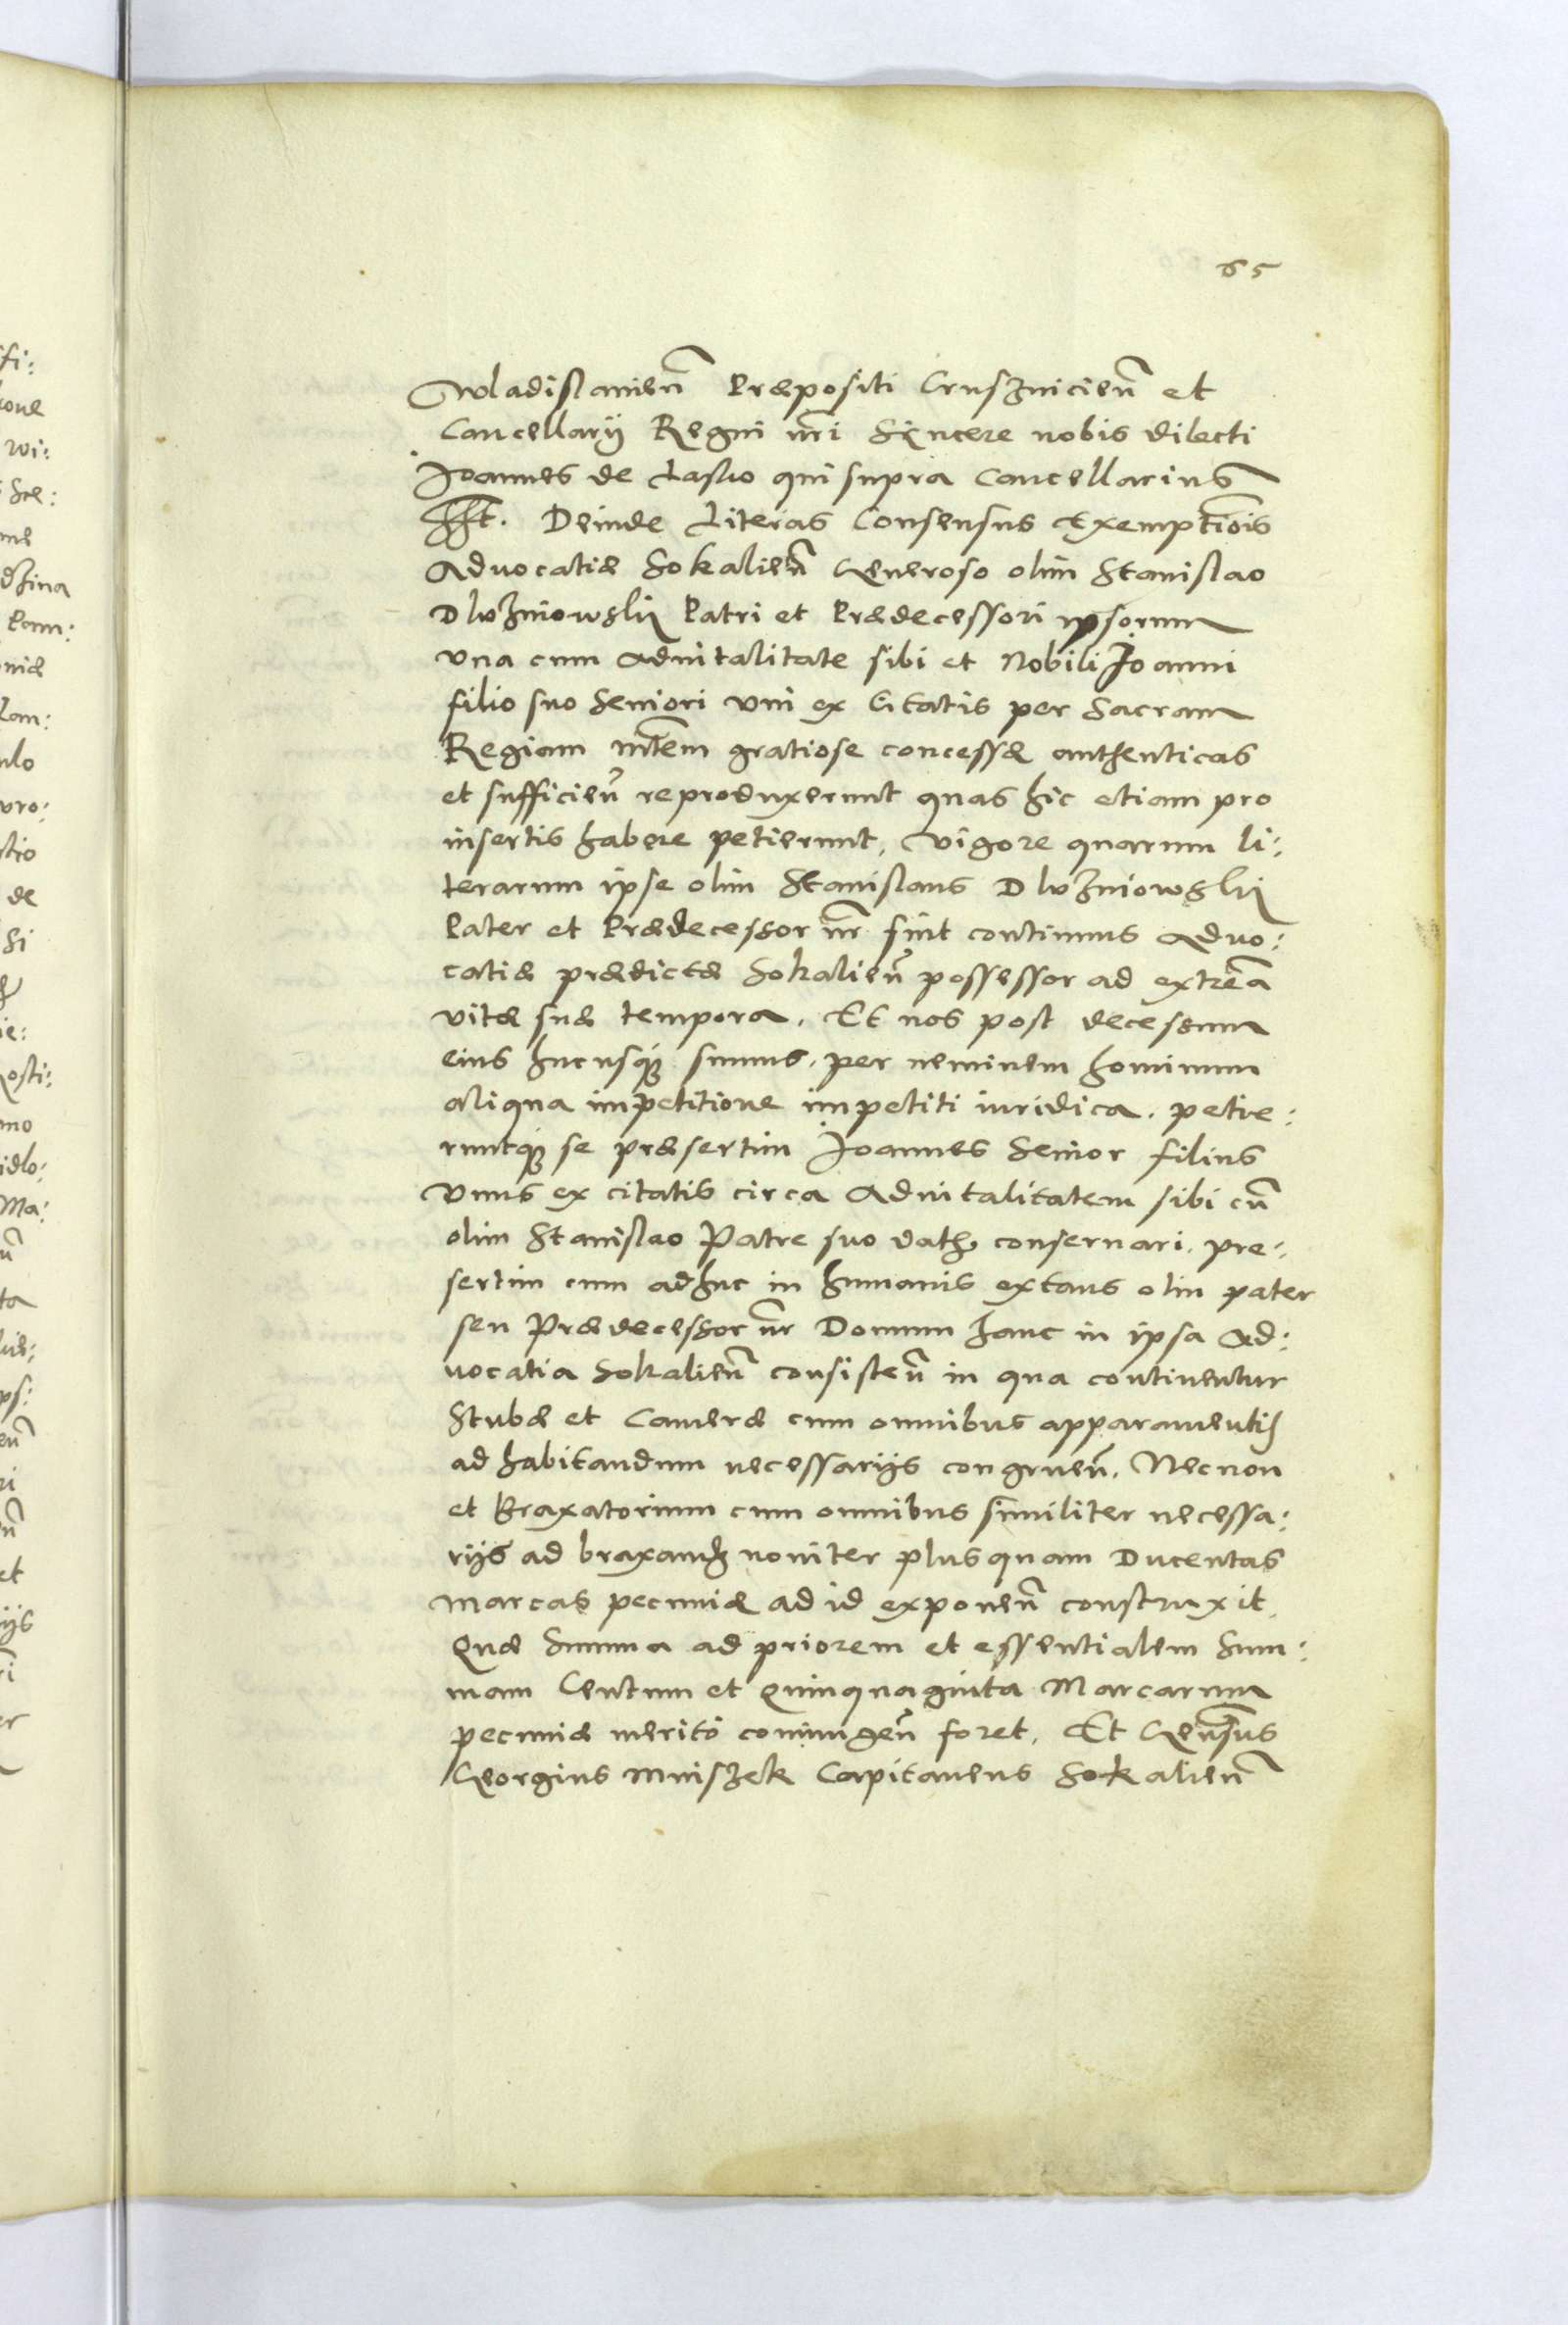 65
Wladislauien̄ Præpositi Crusznicien̄ et
Cancellarij Regni nr̄i Sÿncere nobis dilecti
Ioannes de Lasko qui supra Cancellarius
sst. Deinde Literas Consensus Exemptiōis
Aduocatiæ Sokalien̄ Generoso olim Stanislao
Dluzniowskÿ Patri et Prædecessori ipsorum
vna cum aduitalitate sibi et Nobili Ioanni
filio suo Seniori vni ex Citatis per Sacram
Regiam mt̄em gratiose concessæ authenticas
et sufficien̄ reproduxerunt quas hic etiam pro
insertis habere petierunt, vigore quarum li:
terarum ipse olim Stanislaus Dluzniowskÿ
Pater et Prædecessor nr̄ fuit continuus aduo:
catiæ prædictæ Sokalien̄ possessor ad extrēa
vitæ suæ tempora. Et nos post decessum
eius hucusq̨ sumus. per neminem hominum
aliqua impetitione impetiti iuridica. petie:
runtq̨ se præsertim Ioannes Senior filius
vnus ex citatis circa Aduitalitatem sibi cū
olim Stanislao Patre suo datħ conseruari. pre:
sertim cum adhuc in humanis extans olim pater
seu Prædecessor nr̄ Domum hanc in ipsa Ad:
uocatia Sokalien̄ consisten̄ in qua continentur
Stubæ et Cameræ cum omnibus apparamentis
ad habitandum necessarijs congruen̄. Necnon
et Braxatorium cum omnibus similiter necessa:
rijs ad braxandʒ nouiter plus quam Ducentas
marcas pecuniæ ad id exponen̄ construxit.
Quæ Summa ad priorem et essentialem Sum:
mam Centum et Quinquaginta Marcarum
pecuniæ meritò coniungen̄ foret. Et Gen̄sus
Georgius Mniszek Capitaneus Sokalien̄